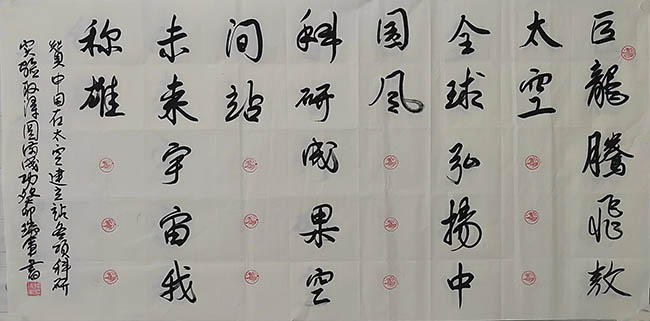 巨龍騰飛敖
太空
全球弘揚中
国风
科研成果空
间站
未来宇宙我
称雄
贺中国在太空建立站各项科研
实验取得圆满成功癸卯書